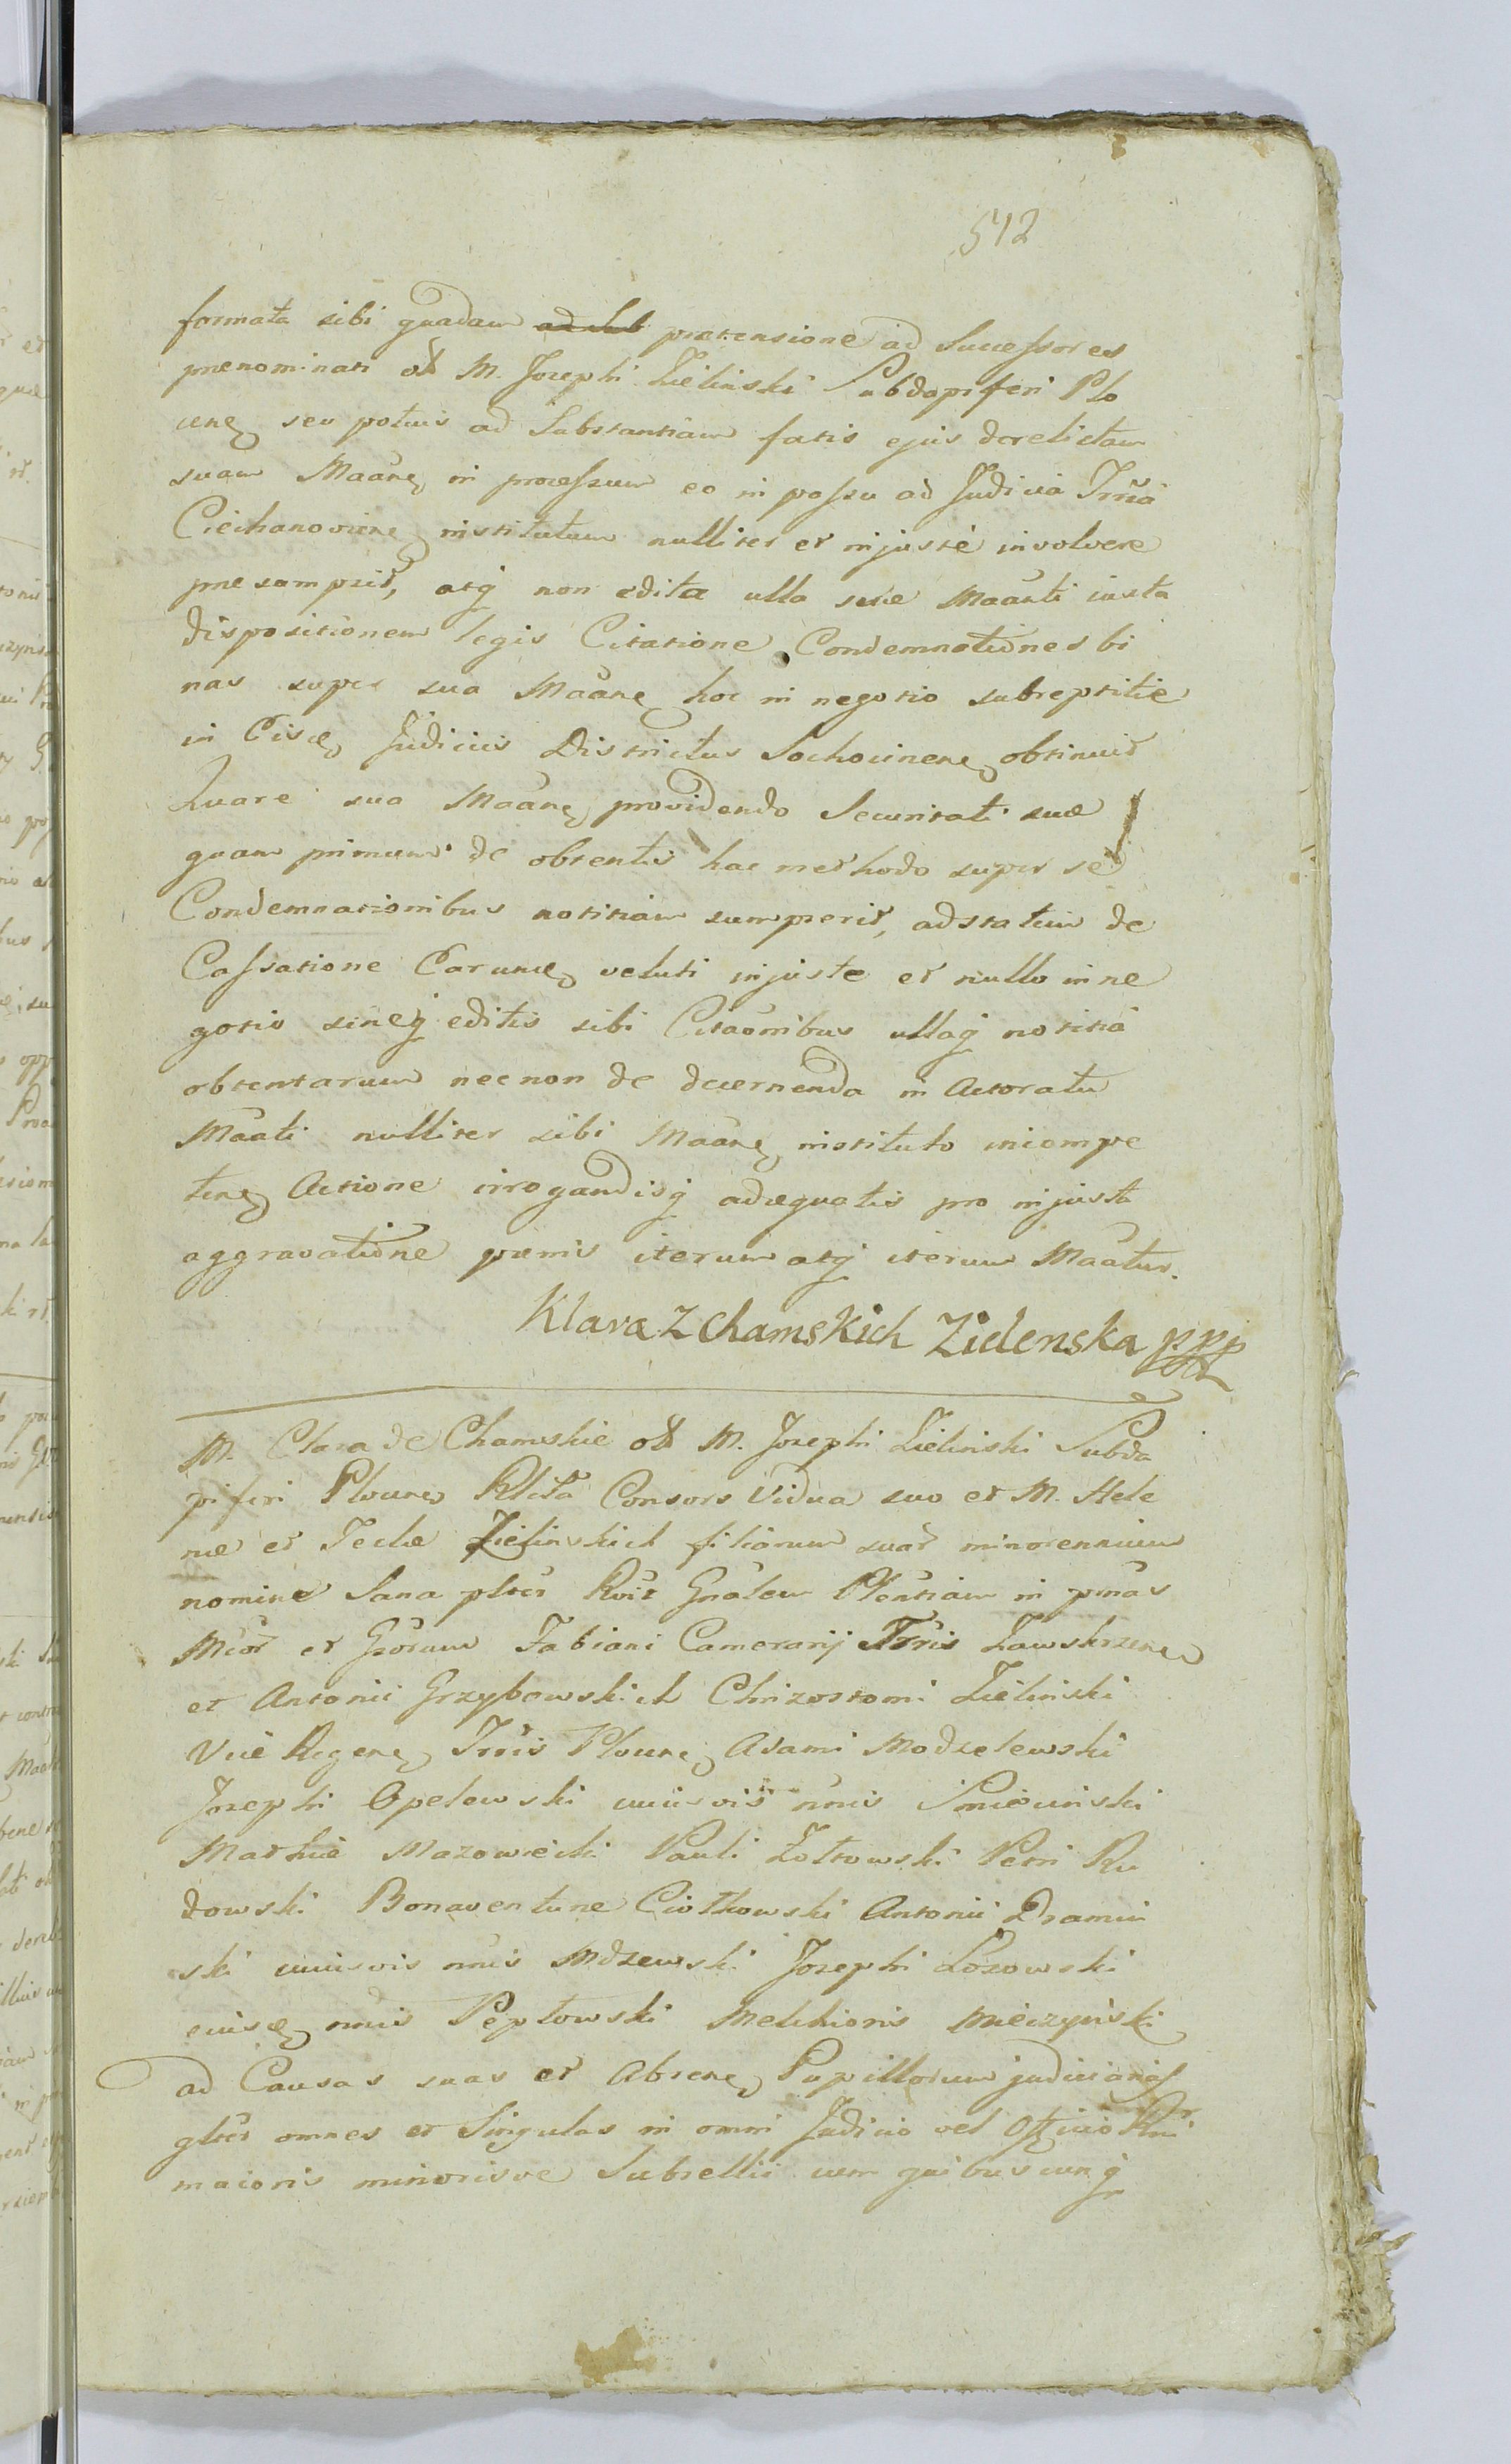 542
formata sibi quadam pratensione ad Successores
prenominati olt M. Josephi Zielinski Subdapiferi Plo
cen seu potius ad Substantiam fatis ejus derelictam
suam Maane in processum eo in passu ad Judicia Trria
Ciechanoviene institutum nulliter et injuste involvere
presumpsit, atq non edita ulla suæ Maanti iuxta
dispositionem legis Citatione Condemnationes bi
nas super sua Maane hoc in negotio subreptitie
in Eisd Judiciis Districtus Sochocinene obtinuit
Quare sua Maane providendo Securitati suæ
quam primum de obtentis hac methodo super se
Condemnationibus notitiam sumpserit, adstatim de
Cassatione Earund veluti injuste et nullo in ne
gotio sineq editis sibi Citaonibus ullaq notitia
obtentarum necnon de decernenda in Actoratu
Maati nulliter sibi Maane instituto incompe
tene Actione irrogandisq adæquatis pro injusta
aggravatione pænis iterum atq iterum Maatur.
Klara z Chamskich Zielenska ppp
M. Clara de Chamskie olt M. Josephi Zielinski Subda
piferi Plocene Rlita Consors Vidua suo et M. Hele
næ et Teclæ Zielinskich filiarum suar minorennium
nomine Sana pltes Koit Gnalem Plentiam in psnas
Mcor et Gsorum Fabiani Camerarij Trris Zawskrzene
et Antonii Grzybowskich Chrizostomi Zielinski
Vice Regene Trris Plocene Adami Modzelewski
Josephi Opelowski cuiusvis nnis Smiecinski
Mathiæ Mazowiecki Pauli Zołtowski Petri Ru
dowski Bonaventuræ Ciołkowski Antonii Dramin
ski cuiusvis nnis Mdzewski Josephi Łozowski
eiusd nnis Pepłowski Melchioris Mieczyński
ad Causas suas et Absene Pupillorum judiciarias
gltes omnes et Singulas in omni Judicio vel Officio Rni
maioris minorisve Subsellii cum quibuscunq